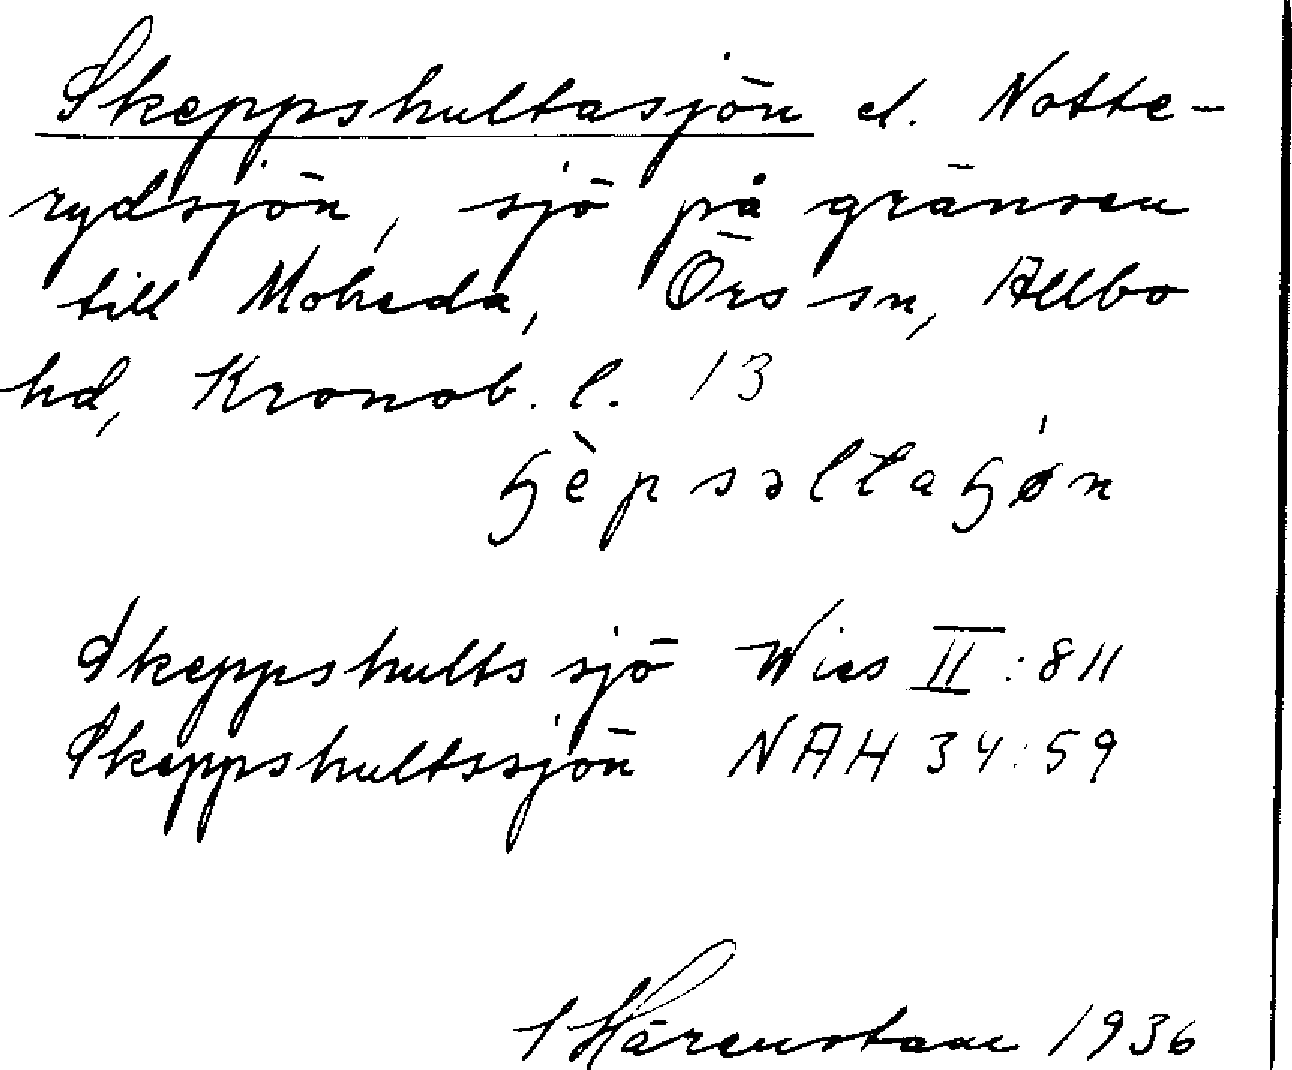 Skeppshultasjön el. Notte-
rydsjön, sjö på gränsen
till Moheda, Örs sn, Allbo
hd, Kronob. l. 13
ɧèpsəltaɧøn
Skeppshults sjö Wies II:811
Skeppshultssjön NAH 34:59
1936